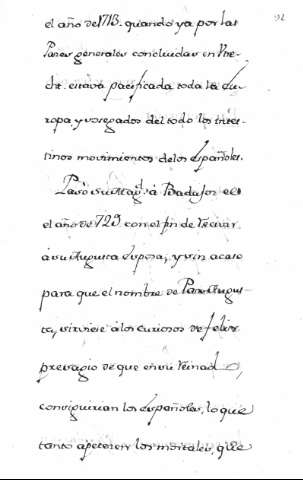 92
el año de 1713. quando ya por las
Pazes generales concluidas en Utre-
cht. estava pacificada toda la Eu-
ropa y sosegados del todo los intes-
tinos movimientos delos Españoles.
Pasò su Mag.d à Badajoz el
el año de 729 con el fin de
à su Augusta Esposa, y sin acaso
para que el nombre de Pax Augus-
ta, sirviese àlos curiosos de feliz
presagio de que en su Reinado,
conseguirian los Españoles, lo que
tanto apetecen los mortales, que